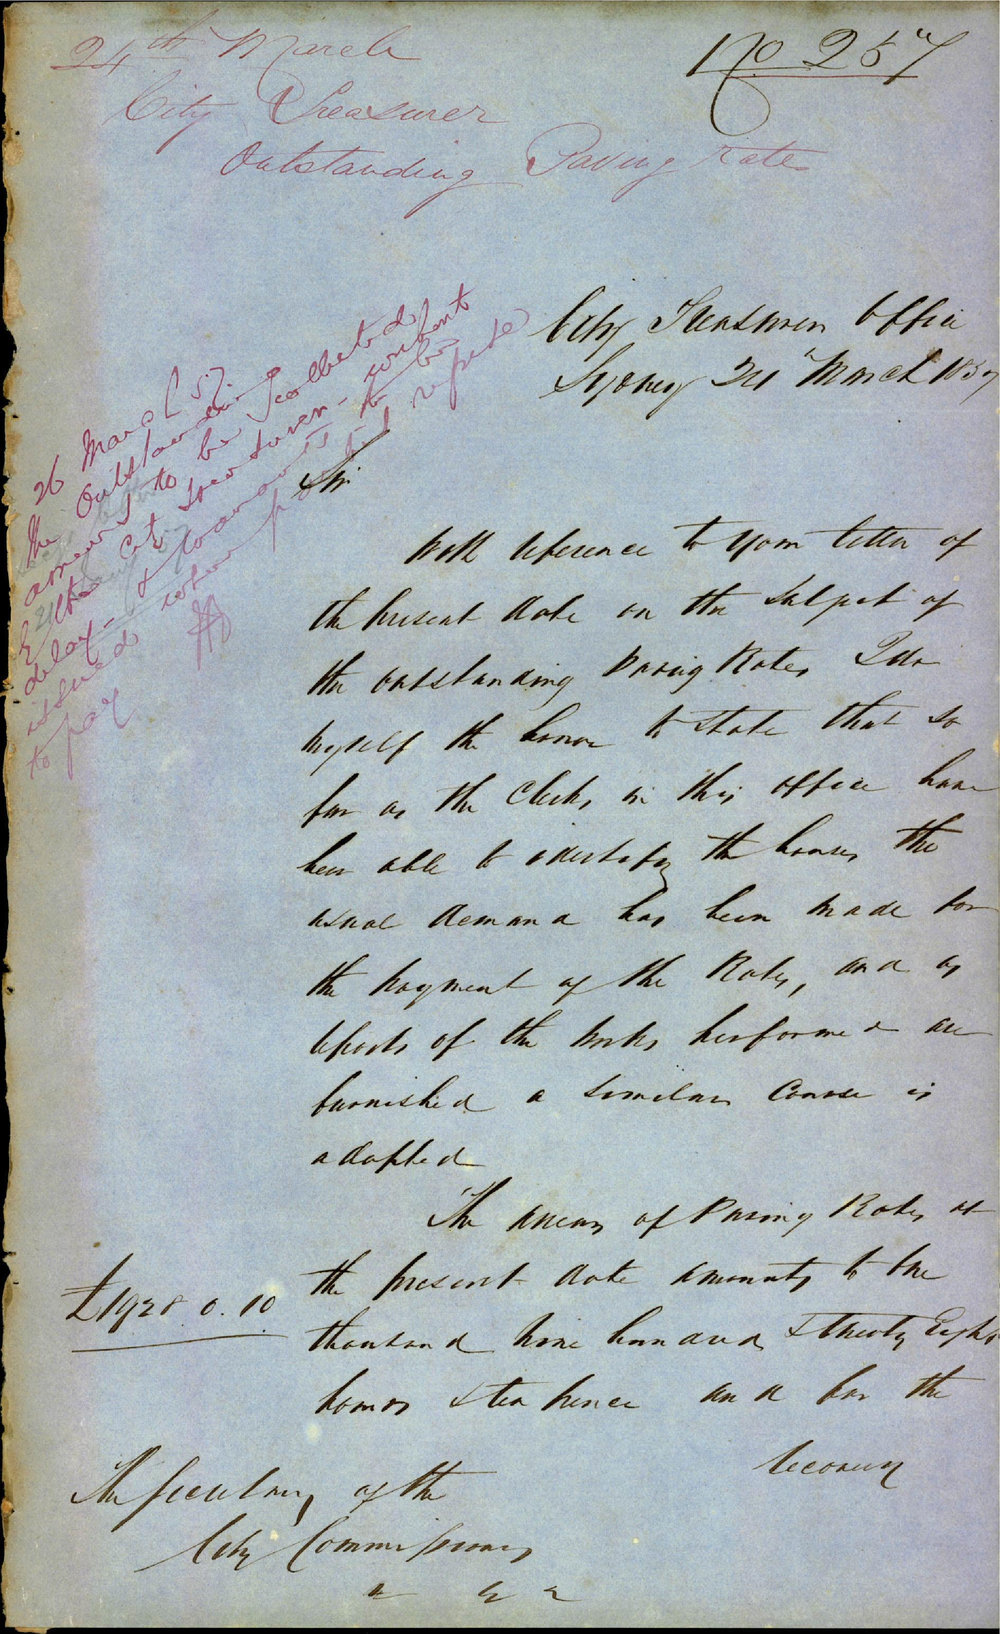 24th March
City Treasurer
Outstanding Paving Rates
No 257
City Treasurers Office
Sydney 24 March 1857
26 March 57
The Outstanding
arrears to be collected
by the City Treasurer without
delay - & warrants to be
issued when parties refuse
to pay
Sir
With reference to your letter of
the present date on the subject of
the outstanding Paving Rates I do
myself the honor to state that so
far as the Clerks in this office have
been able to identify the houses the
usual demand has been made for
the payment of the Rates, and as
reports of the works performed are
furnished a similar course is
adopted
The arrears of Paving Rates at
the present date amounts to One
£1928.0.10
thousand nine hundred & twenty Eight
pounds & ten pence and for the
recovery
The Secretary of the
City Commissioners